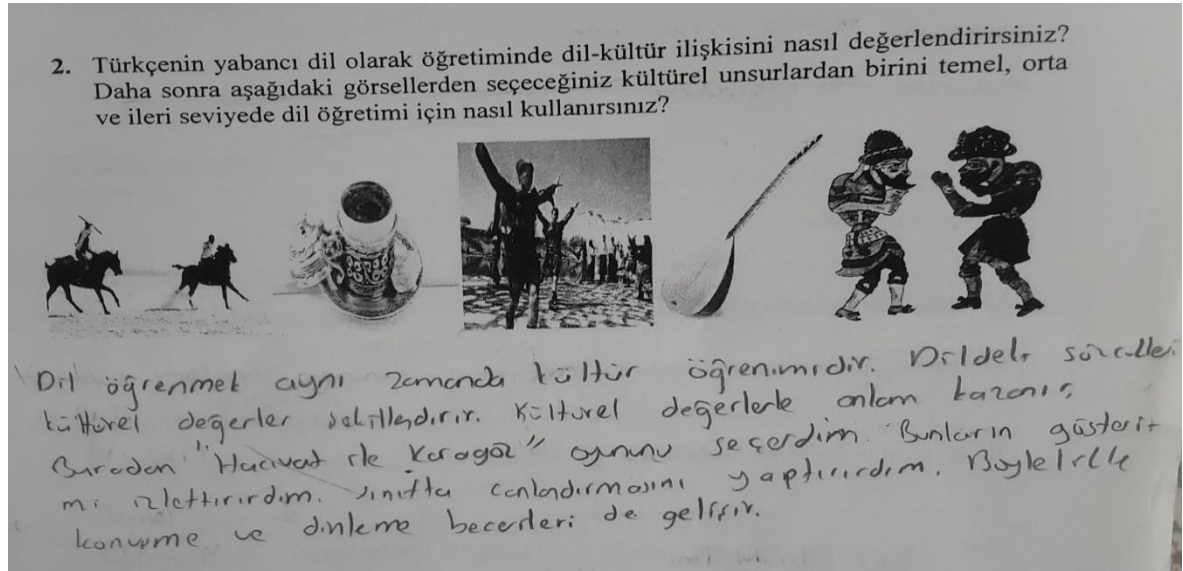 2. Türkçenin yabancı dil olarak öğretiminde dil-kültür ilişkisini nasıl değerlendirirsiniz?
Daha sonra aşağıdaki görsellerden seçeceğiniz kültürel unsurlardan birini temel, orta
ve ileri seviyede dil öğretimi için nasıl kullanırsınız?
Dil öğrenmek aynı zamanda kültür öğrenimidir. Dildeki sözcükleri
kültürel değerler şekillendirir. Kültürel değerlerle anlam kazanır.
Buradan "Hacivat ile Karagöz" oyununu seçerdim. Bunların gösteri-
mi izlettirirdim. Sınıfta canlandırmasını yaptırırdım. Böylelikle
konuşma ve dinleme becerileri de gelişir.